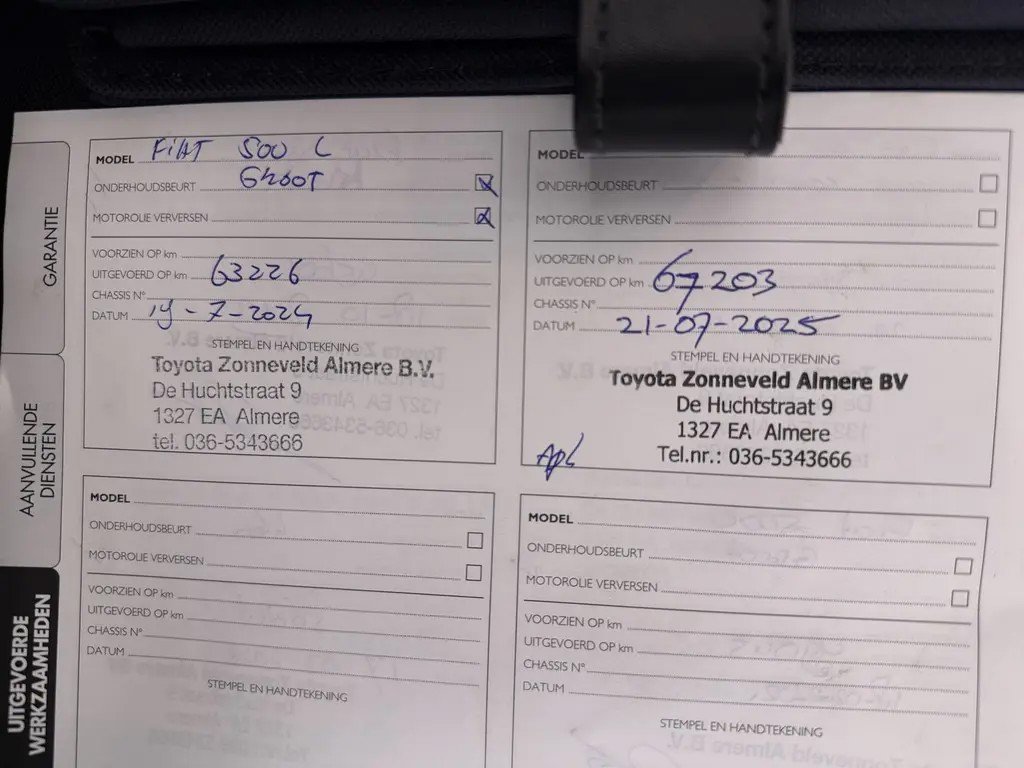 GARANTIE
AANVULLENDE
DIENSTEN
UITGEVOERDE
WERKZAAMHEDEN
MODEL FIAT 500 L
ONDERHOUDSBEURT GROOT
MOTOROLIE VERVERSEN
VOORZIEN OP km
UITGEVOERD OP km 63226
CHASSIS N°
DATUM 19-7-2024
STEMPEL EN HANDTEKENING
Toyota Zonneveld Almere B.V.
De Huchtstraat 9
1327 EA Almere
tel. 036-5343666
MODEL
ONDERHOUDSBEURT
MOTOROLIE VERVERSEN
VOORZIEN OP km
UITGEVOERD OP km 67203
CHASSIS N°
DATUM 21-07-2025
STEMPEL EN HANDTEKENING
Toyota Zonneveld Almere BV
De Huchtstraat 9
1327 EA Almere
Tel.nr.: 036-5343666
MODEL
ONDERHOUDSBEURT
MOTOROLIE VERVERSEN
VOORZIEN OP km
UITGEVOERD OP km
CHASSIS N°
DATUM
STEMPEL EN HANDTEKENING
MODEL
ONDERHOUDSBEURT
MOTOROLIE VERVERSEN
VOORZIEN OP km
UITGEVOERD OP km
CHASSIS N°
DATUM
STEMPEL EN HANDTEKENING